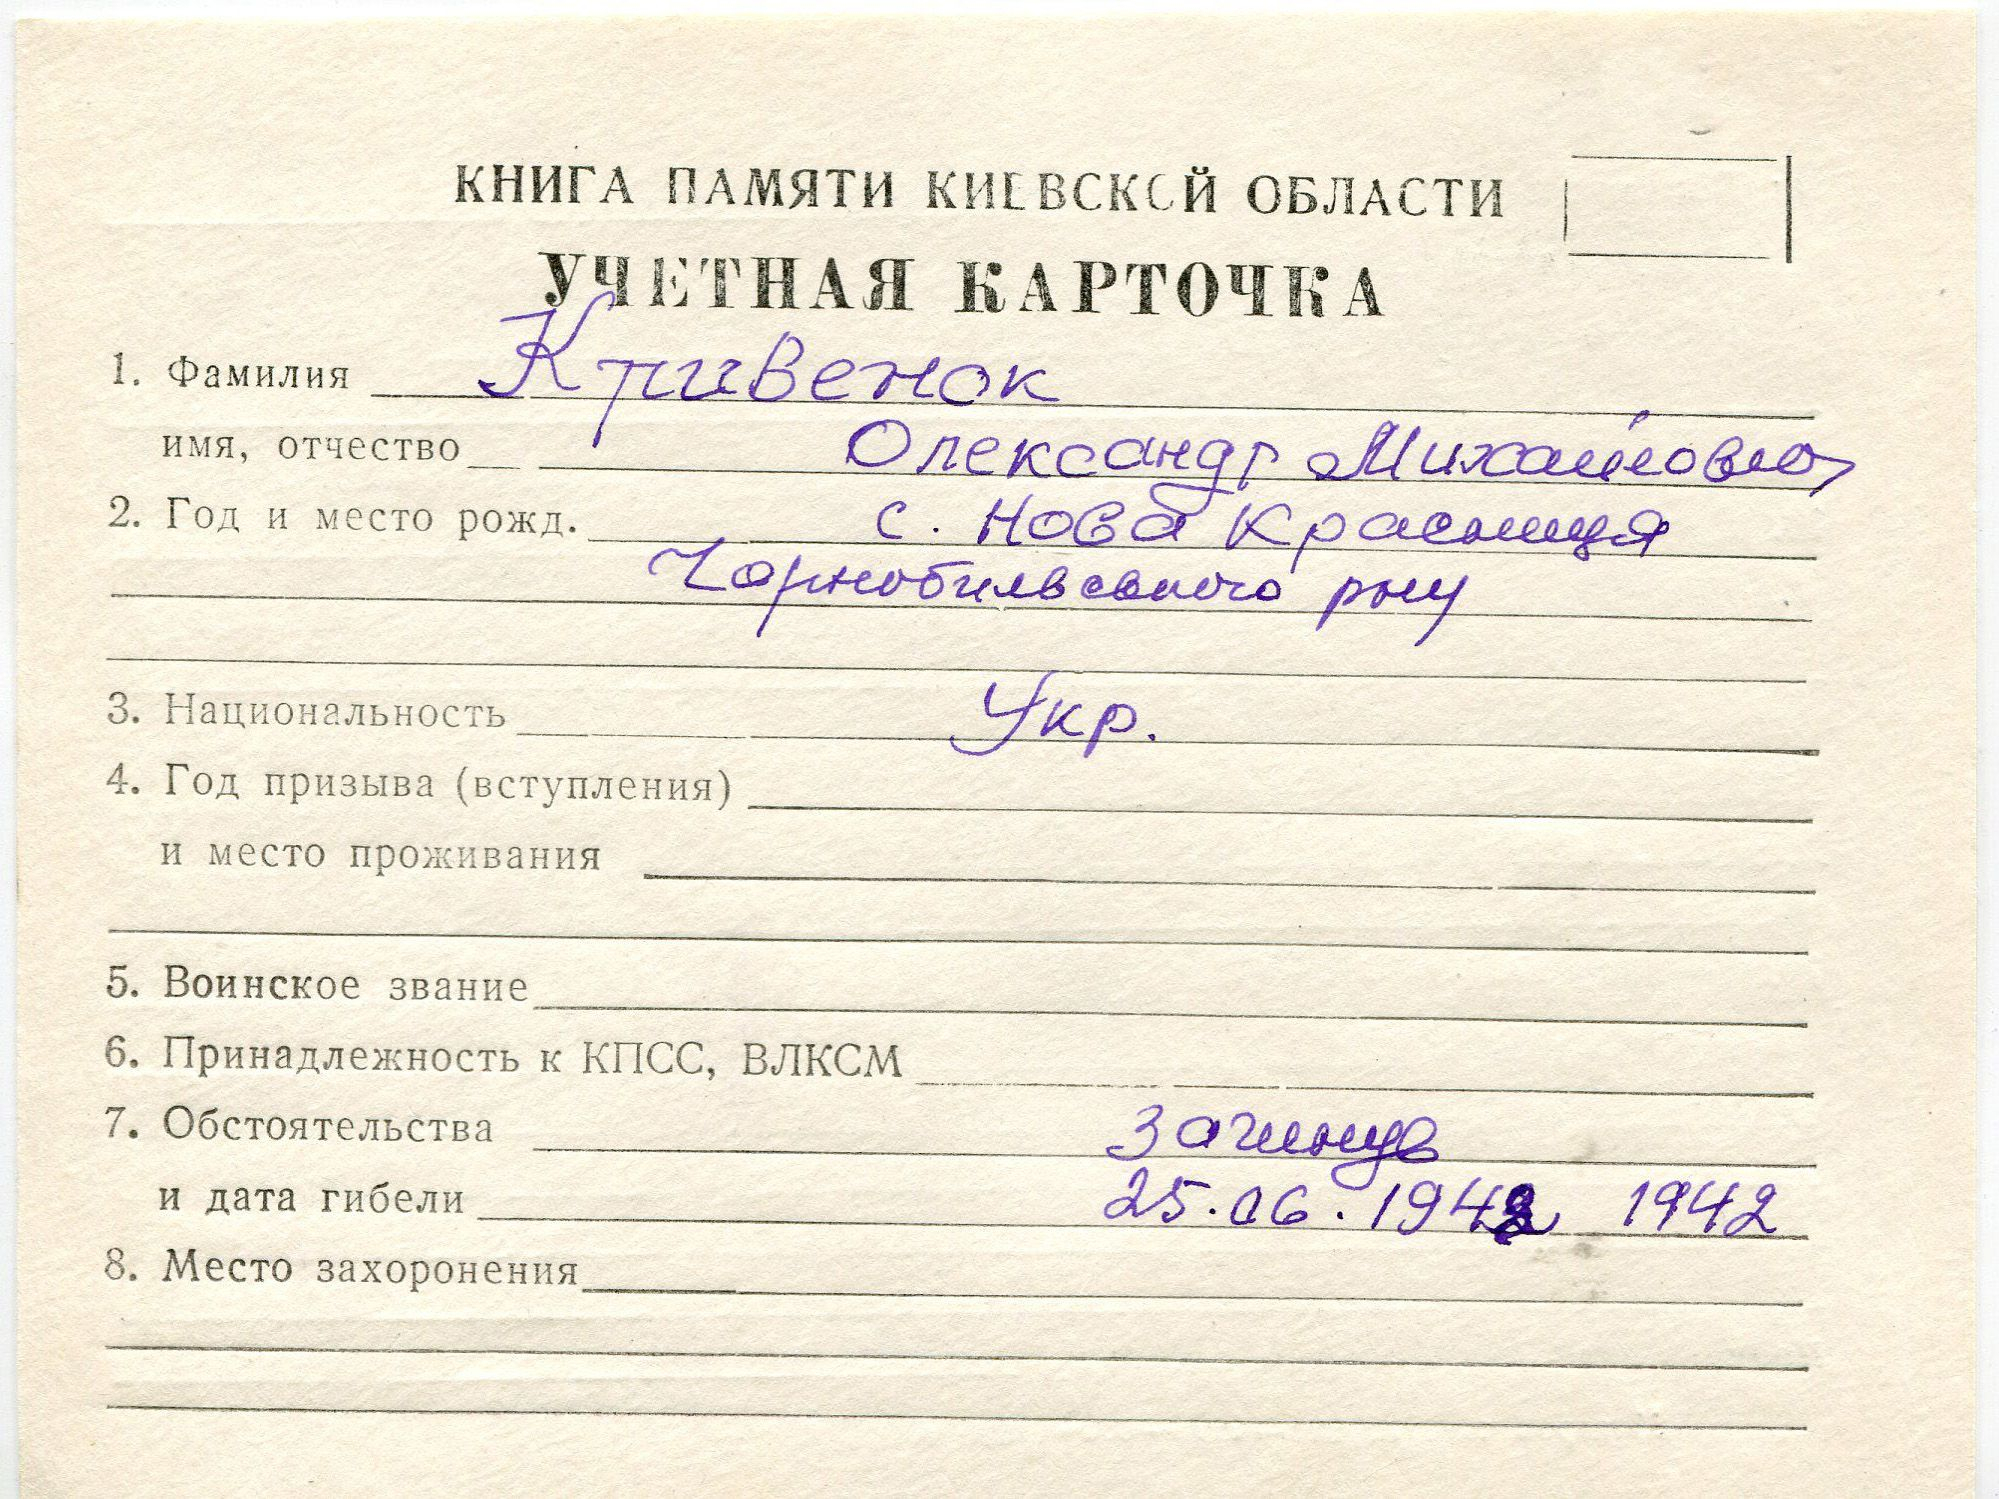 КНИГА ПАМЯТИ КИЕВСКОЙ ОБЛАСТИ
УЧЕТНАЯ КАРТОЧКА
1. Фамилия Кривенок
имя, отчество Олександр Михайлович
2. Год и место рожд. с. Нова Красниця
Чорнобильського р-ну
3. Национальность Укр.
4. Год призыва (вступления)
и место проживания
5. Воинское звание
6. Принадлежность к КПСС, ВЛКСМ
7. Обстоятельства загинув
и дата гибели 25.06.1942 1942
8. Место захоронения